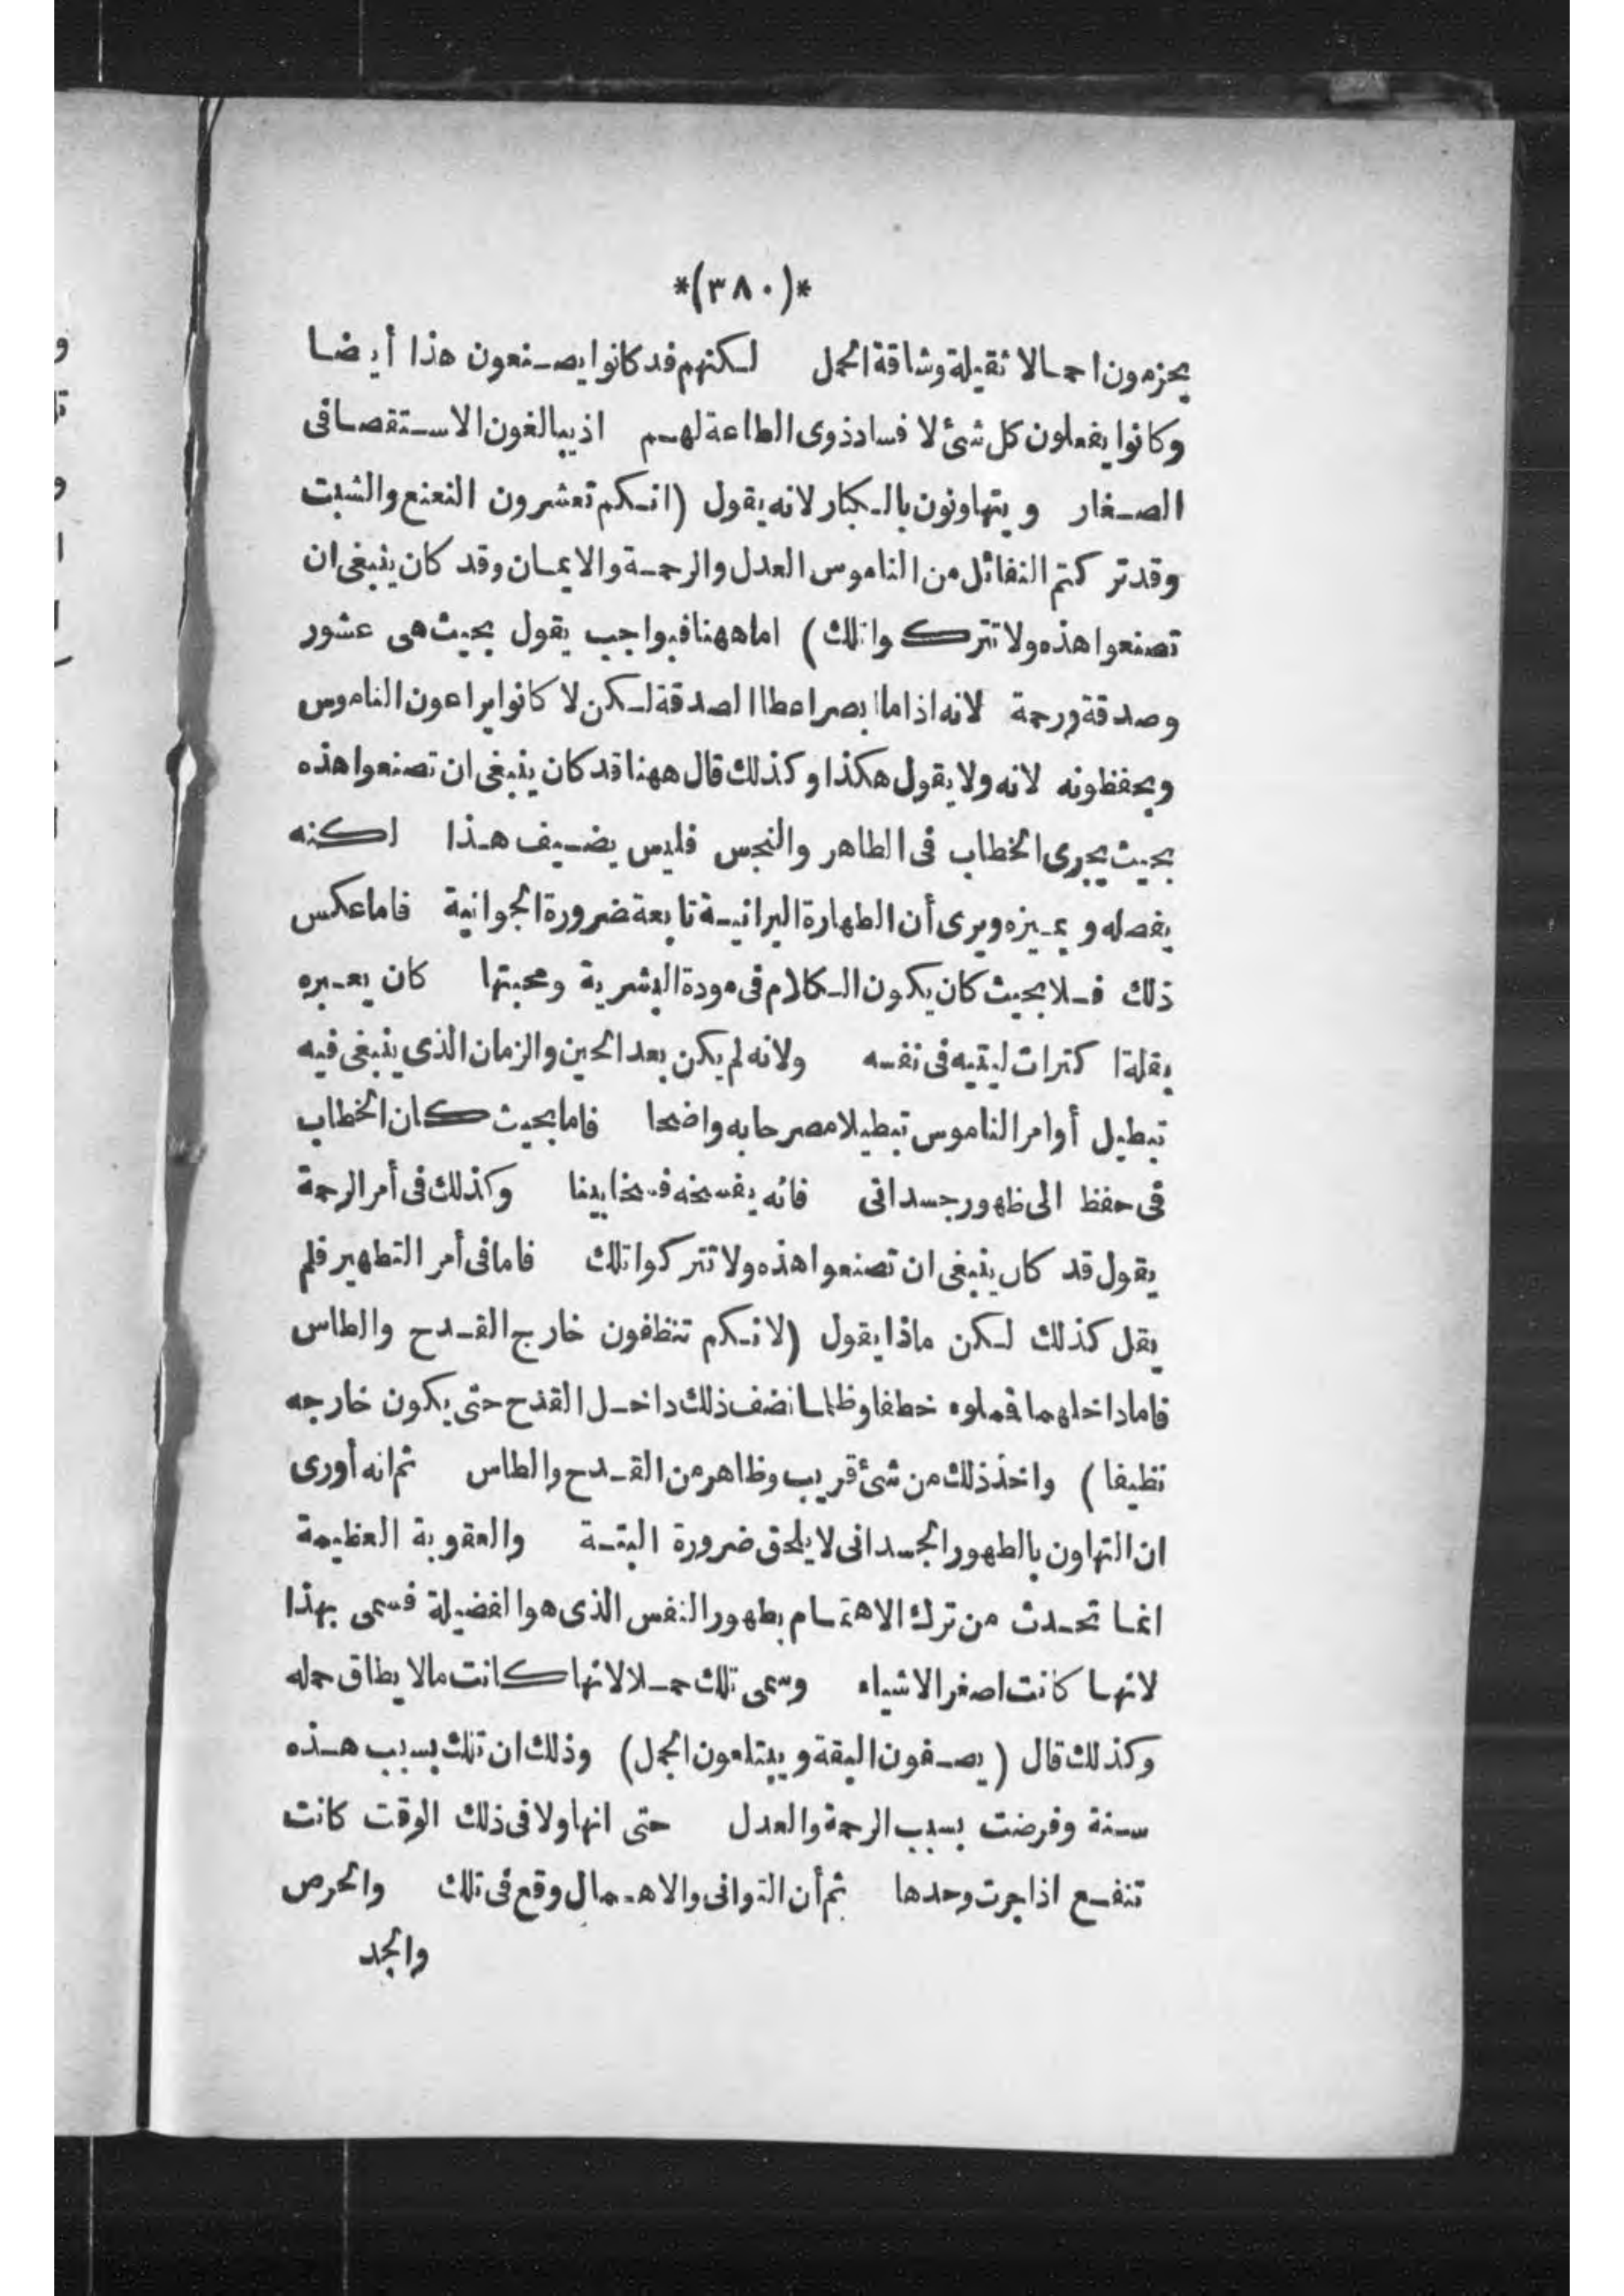 *(٣٨٠)*
يحزمون احمالا ثقيلة وشاقة الحمل لكنهم قد كانوا يصنعون هذا أيضا
وكانوا يفعلون كل شئ لا فساد ذوى الطاعة لهم اذ يبالغون الاستقصا فى
الصغار ويتهاونون بالكبار لانه يقول (انكم تعشرون النعنع والشبت
وقد تركتم الثقائل من الناموس العدل والرحمة والايمان وقد كان ينبغى ان
تصنعوا هذه ولا تتركوا تلك) اما ههنا فبواجب يقول بحيث هى عشور
وصدقة ورحمة لانه اذا ما ابصر اعطا الصدقة لكن لا كانوا يراعون الناموس
ويحفظونه لانه ولا يقول هكذا وكذلك قال ههنا قد كان ينبغى ان تصنعوا هذه
بحيث يجرى الخطاب فى الطاهر والنجس فليس يضيف هذا لكنه
يفصله ويميزه ويرى أن الطهارة البرانية تابعة ضرورة الجوانية فاما عكس
ذلك فلا بحيث كان يكون الكلام فى مودة البشرية ومحبتها كان يعبره
بقلة اكترات ليتيه فى نفسه ولانه لم يكن بعد الحين والزمان الذى ينبغى فيه
تبطيل أوامر الناموس تبطيلا مصرحا به واضحا فاما بحيث كان الخطاب
فى حفظ الى ظهور جسدانى فانه يفسخه فسخا بينا وكذلك فى أمر الرحمة
يقول قد كان ينبغى ان تصنعوا هذه ولا تتركوا تلك فاما فى أمر التطهير فلم
يقل كذلك لكن ماذا يقول (لانكم تنظفون خارج القدح والطاس
فاما داخلهما فملوه خطفا وظلما نضف ذلك داخل القدح حتى يكون خارجه
نظيفا) واخذ ذلك من شئ قريب وظاهر من القدح والطاس ثم انه أورى
ان التهاون بالطهور الجسدانى لا يلحق ضرورة البتة والعقوبة العظيمة
انما تحدث من ترك الاهتمام بطهور النفس الذى هو الفضيلة فسمى بهذا
لانها كانت اصغر الاشياء وسمى تلك حملا لانها كانت مالا يطاق حمله
وكذلك قال (يصفون البقة ويبتلعون الجمل) وذلك ان تلك بسبب هذه
سنة وفرضت بسبب الرحمة والعدل حتى انها ولا فى ذلك الوقت كانت
تنفع اذا جرت وحدها ثم أن التوانى والاهمال وقع فى تلك والحرص
والجد